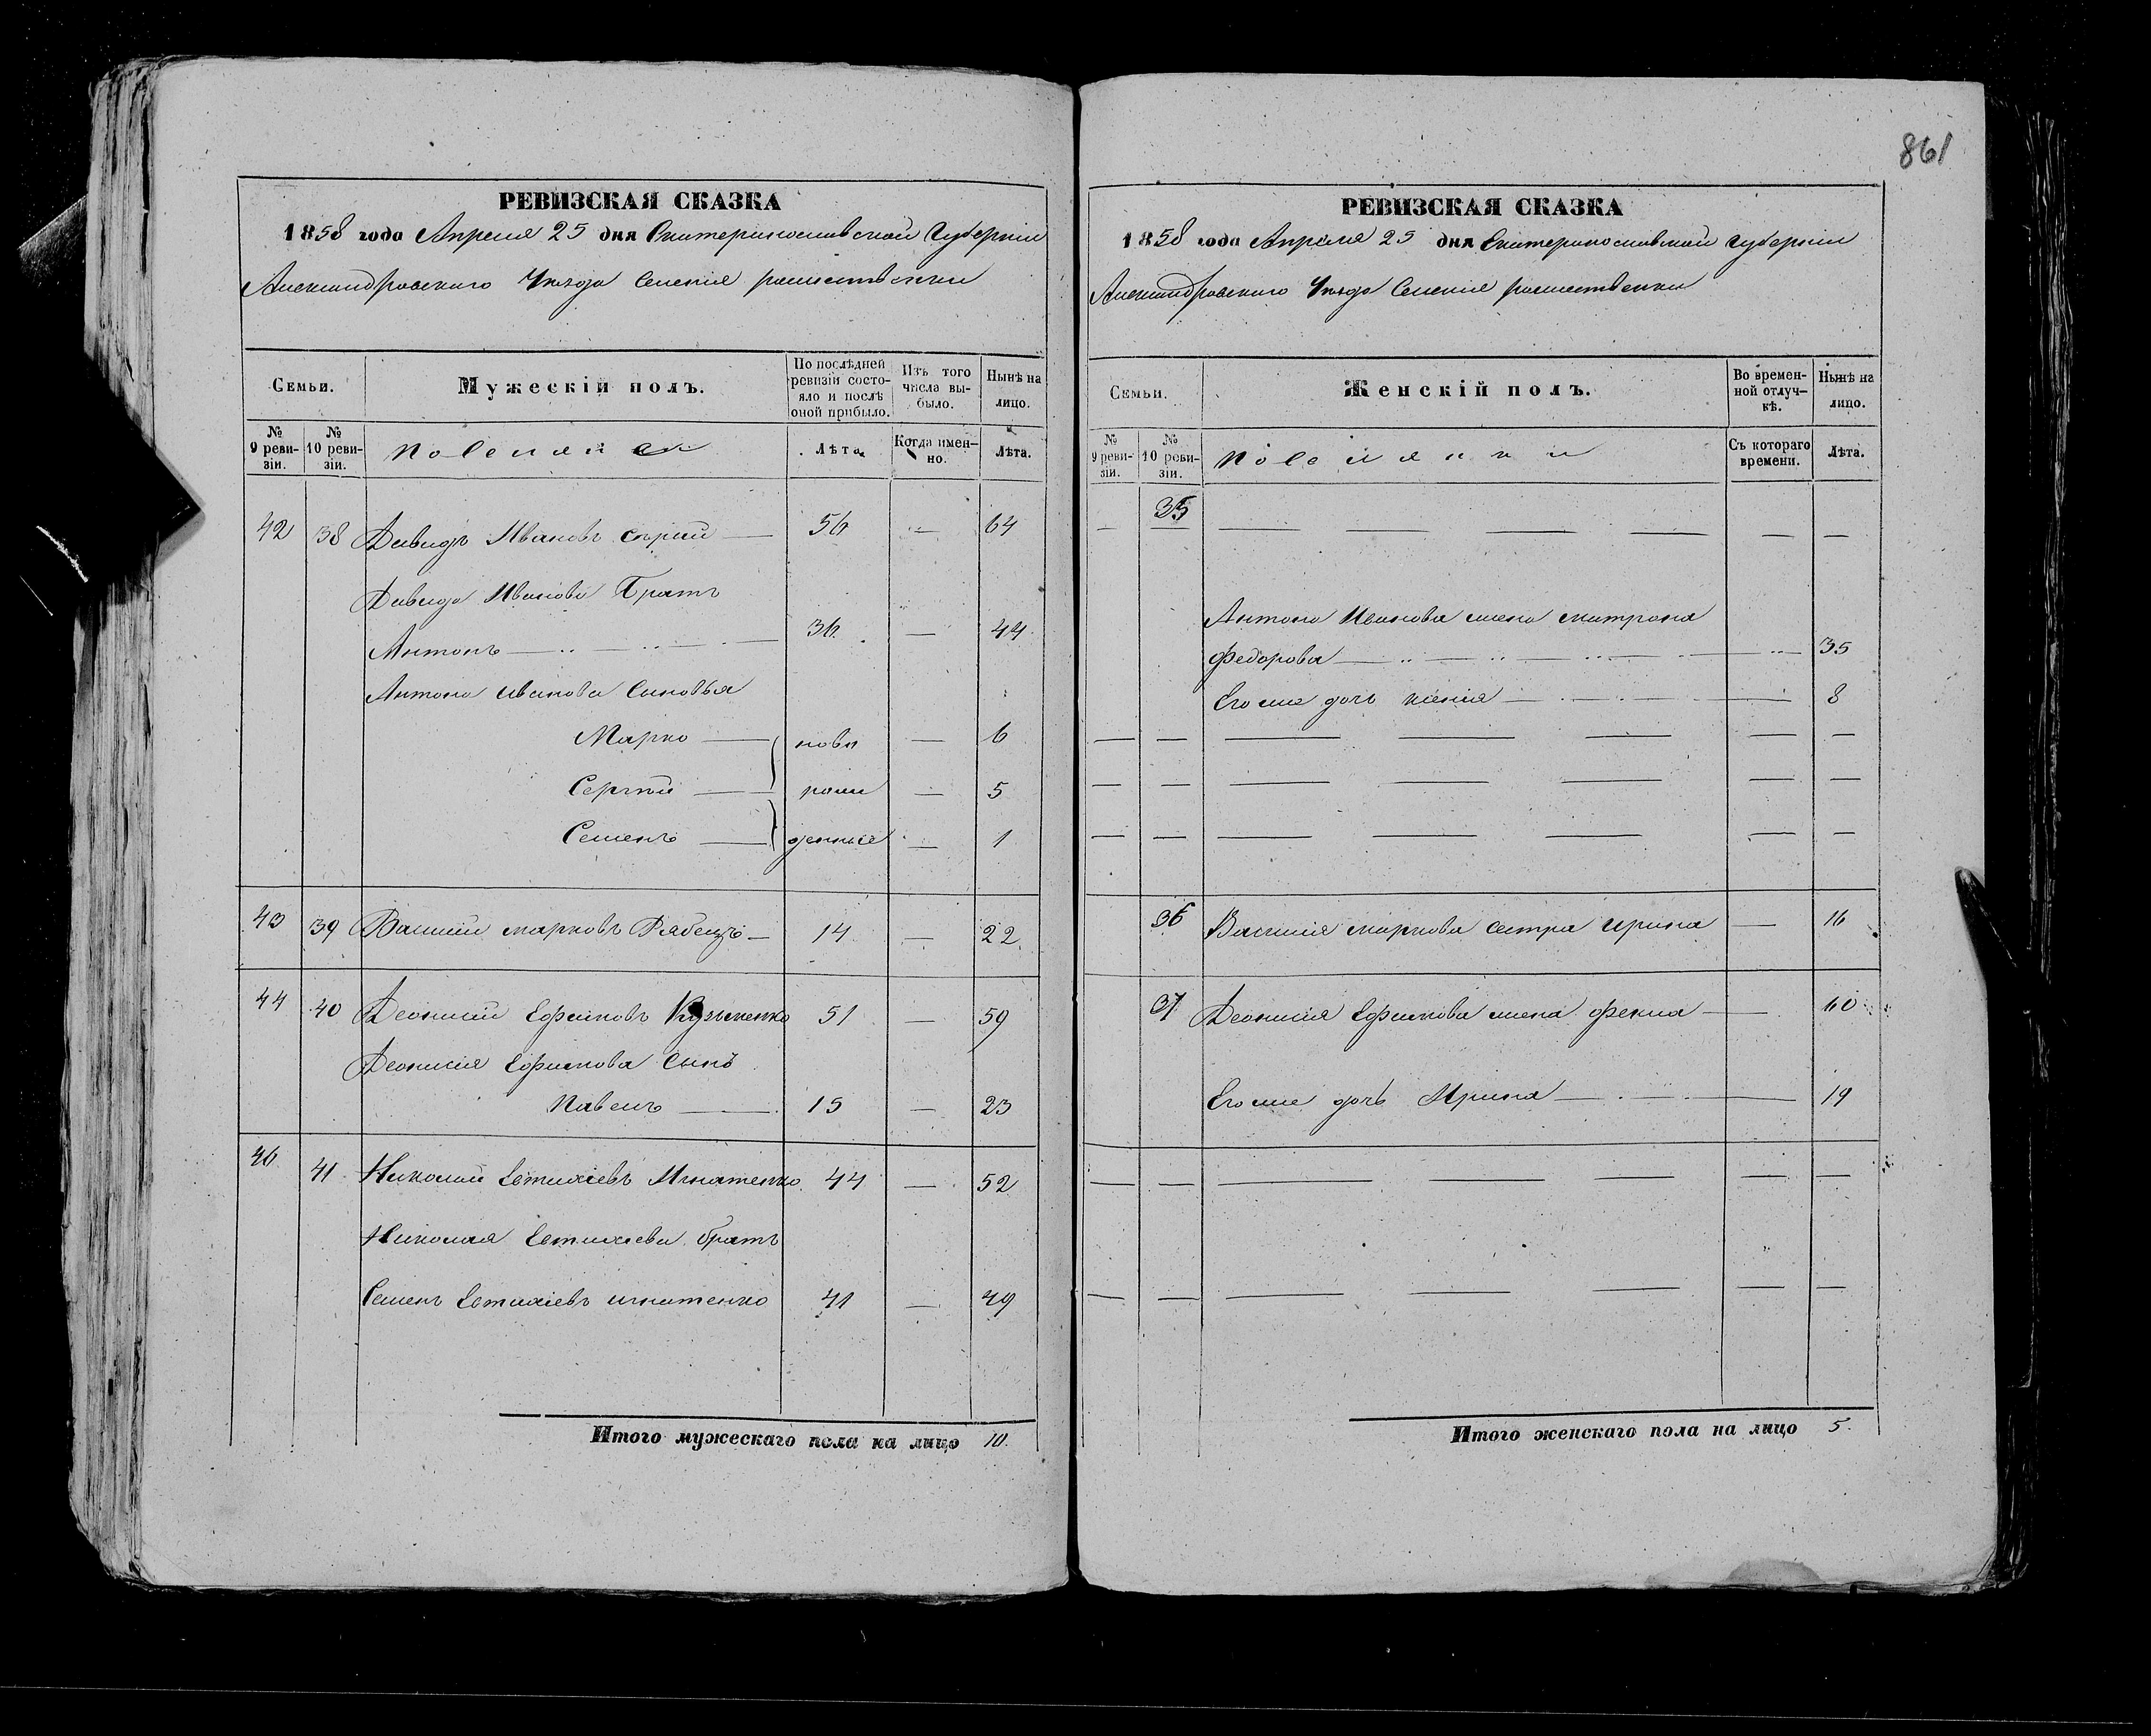 861
РЕВИЗСКАЯ СКАЗКА
1858 года Апреля 25 дня Екатеринославской Губернии
Александровскаго Уезда Селения
Семьи.
Мужескій полъ.
По послѣдней ревизіи состо-
яло и послѣ
оной прибыло.
Изъ того
числа вы-
было.
Нынѣ на
лицо.
№
9 реви-
зіи.
№
10 реви-
зіи.
Поселяне
Лѣта.
Когда имен-
но.
Лѣта.
42 38 Давидъ Ивановъ Сѣрый 56 — 64
Давида Иванова Братъ
Антонъ 36 — 44
Антона Иванова Сыновья
Марко ново — 6
Сергѣй рож — 5
Семенъ денные — 1
43 39 Василий Марковъ Рябецъ 14 — 22
44 40 Деонисий Ефимовъ Кузьменко 51 — 59
Деонисия Ефимова Сынъ
Павелъ 15 — 23
46 41 Николай Евтихіевъ Игнатенко 44 — 52
Николая Евтихіева братъ
Семенъ Евтихіевъ Игнатенко 41 — 49
Итого мужескаго пола на лицо 10.
РЕВИЗСКАЯ СКАЗКА
1858 года Апреля 25 дня Екатеринославской Губернии
Александровскаго Уезда Селения
Семьи.
Женскій полъ.
Во времен-
ной отлуч-
кѣ.
Нынѣ на
лицо.
№
9 реви-
зіи.
№
10 реви-
зіи.
Поселянки
Съ котораго
времени.
Лѣта.
— 35 — — — — — —
Антона Иванова жена Матрона
Федорова 35
Его же дочь Ксения 8
36 Василия Маркова сестра Ирина — 16
37 Деонисия Ефимова жена Фекла 60
Его же дочь Ирина 19
Итого женскаго пола на лицо 5.